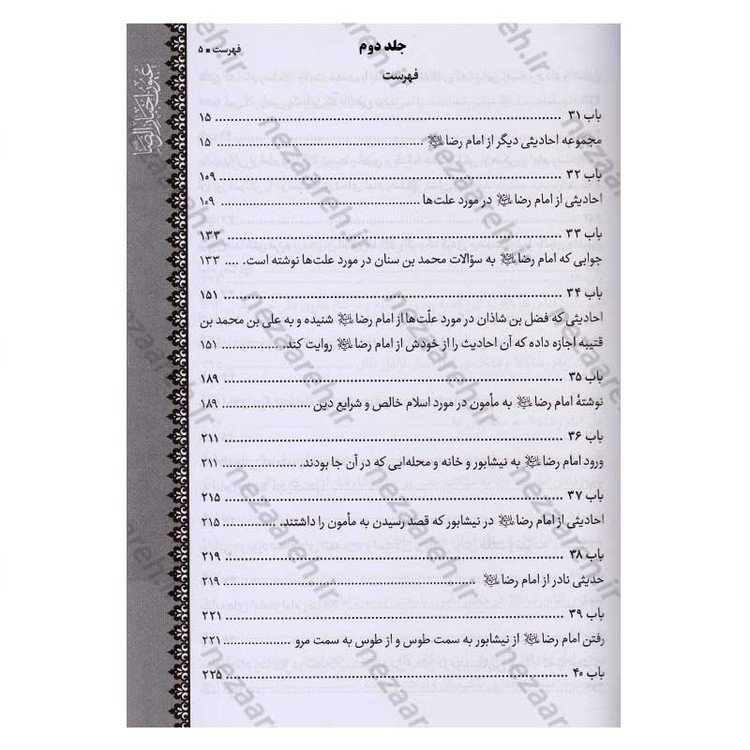 جلد دوم
فهرست ■ ۵
فهرست
عیون اخبار الرضا
باب ۳۱ ........ ۱۵
مجموعه احادیثی دیگر از امام رضا ........ ۱۵
باب ۳۲ ........ ۱۰۹
احادیثی از امام رضا در مورد علت‌ها ........ ۱۰۹
باب ۳۳ ........ ۱۳۳
جوابی که امام رضا به سؤالات محمد بن سنان در مورد علت‌ها نوشته است. .... ۱۳۳
باب ۳۴ ........ ۱۵۱
احادیثی که فضل بن شاذان در مورد علّت‌ها از امام رضا شنیده و به علی بن محمد بن
قتیبه اجازه داده که آن احادیث را از خودش از امام رضا روایت کند. ........ ۱۵۱
باب ۳۵ ........ ۱۸۹
نوشتهٔ امام رضا به مأمون در مورد اسلام خالص و شرایع دین ........ ۱۸۹
باب ۳۶ ........ ۲۱۱
ورود امام رضا به نیشابور و خانه و محله‌ایی که در آن جا بودند. ........ ۲۱۱
باب ۳۷ ........ ۲۱۵
احادیثی از امام رضا در نیشابور که قصد رسیدن به مأمون را داشتند. ........ ۲۱۵
باب ۳۸ ........ ۲۱۹
حدیثی نادر از امام رضا ........ ۲۱۹
باب ۳۹ ........ ۲۲۱
رفتن امام رضا از نیشابور به سمت طوس و از طوس به سمت مرو ........ ۲۲۱
باب ۴۰ ........ ۲۲۵
nezaareh.ir